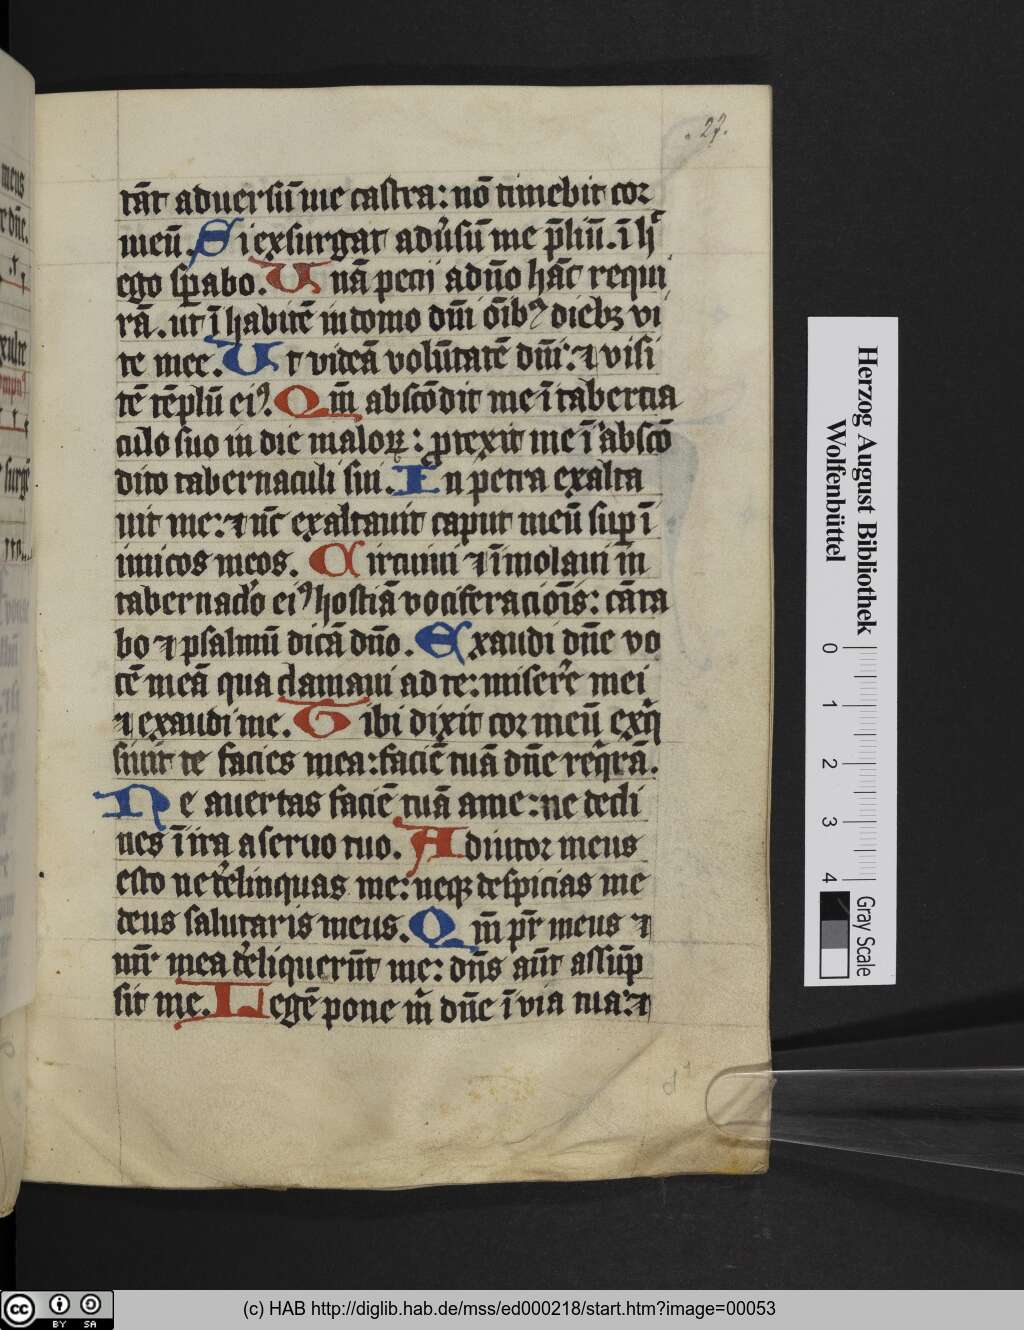 .27.
tāt aduersū me castra: nō timebit cor
meū. Si exsurgat adūsū me p̄liū. ī hͨ
ego sꝑabo. Unā petij a dn̄o hāc requi
rā. ut īhabitē in domo dn̄i oībꝰ diebꝫ vi
te mee. Ut videā volūtatē dn̄i: ⁊ visi
tē tēplū eiꝰ. Qm̄ abscōdit me ī taberna
culo suo in die maloꝝ: ꝓtexit me ī abscō
dito tabernaculi sui. In petra exalta
uit me: ⁊ nūc exaltauit caput meū suꝑ ī
imicos meos. Circuiui ⁊ īmolaui ī
tabernaclo eiꝰ hostiā vociferaciōis: cāta
bo ⁊ psalmū dicā dn̄o. Exaudi dn̄e vo
cē meā qua clamaui ad te: miserē mei
⁊ exaudi me. Tibi dixit cor meū exqͥ
siuit te facies mea: faciē tuā dn̄e reqͥrā.
Ne auertas faciē tuā a me: ne decli
nes ī ira a seruo tuo. Adiutor meus
esto ne derelinquas me: neqꝫ despicias me
deus salutaris meus. Qm̄ pr̄ meus ⁊
mr̄ mea dereliquerūt me: dn̄s aūt assūp
sit me. Legē pone m̄ dn̄e ī via tua: ⁊
d 1
meus
dn̄e.
surgē
Herzog August Bibliothek
Wolfenbüttel
0 1 2 3 4
Gray Scale
cc BY SA
(c) HAB http://diglib.hab.de/mss/ed000218/start.htm?image=00053